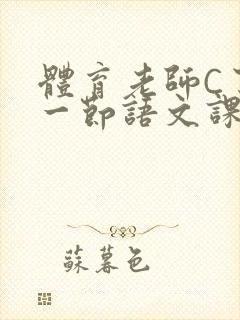 體育老師C
一節語文課
蘇暮色